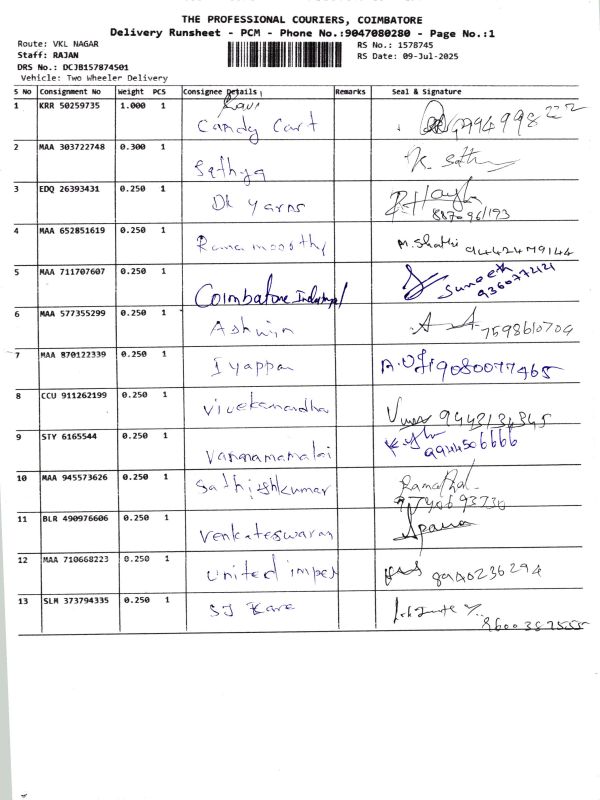 THE PROFESSIONAL COURIERS, COIMBATORE
Delivery Runsheet - PCM - Phone No.:9047080280 - Page No.:1
Route: VKL NAGAR
Staff: RAJAN
DRS No.: DCJB157874501
Vehicle: Two Wheeler Delivery
RS No.: 1578745
RS Date: 09-Jul-2025
S No Consignment No Weight PCS Consignee Details Remarks Seal & Signature
1 KRR 50259735 1.000 1 Ravi
Candy Cart
2 MAA 303722748 0.300 1 Sathya K. Sath
3 EDQ 26393431 0.250 1 Dk Yarns
4 MAA 652851619 0.250 1 Ramamoorthy M. Shathi 9442479144
5 MAA 711707607 0.250 1 Coimbatore Industrial Suneeth
6 MAA 577355299 0.250 1 Ashwin 7598610704
7 MAA 870122339 0.250 1 Iyappan 9080077465
8 CCU 911262199 0.250 1 Vivekanandha
9 STY 6165544 0.250 1 Vannamamalai 9944506666
10 MAA 945573626 0.250 1 Sathishkumar
11 BLR 490976606 0.250 1 Venkateswaran
12 MAA 710668223 0.250 1 United impex 8940236294
13 SLM 373794335 0.250 1 SJ Kare